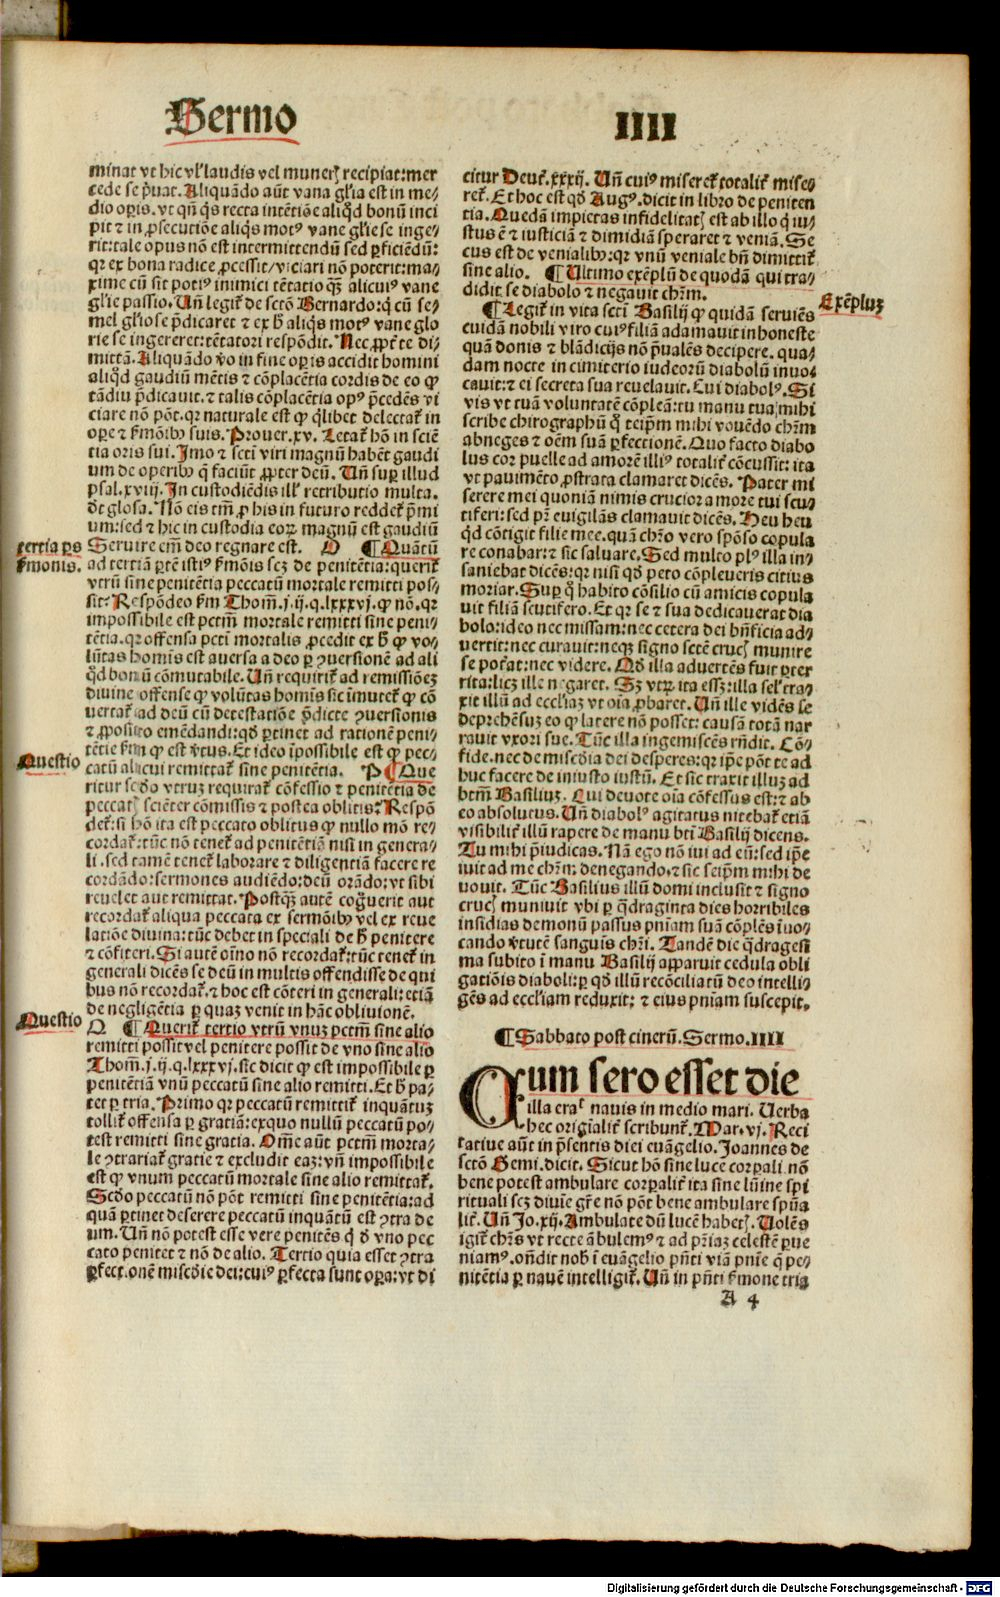 Sermo
IIII
minat vt hic vl'laudis vel munerꝭ recipiat: mer
cede se p̱uat. Aliquādo aūt vana gl'ia est in me-
dio oꝑis. vt qn̄ q̄s recta intētiōe aliq̄d bonū inci
pit ⁊ in ꝓsecutiōe aliq̄s motꝰ vane gl'ie se inge-
rit: tale opus nō est intermittendū sed ꝑficiēdū:
qꝛ ex bona radice ꝓcessit / viciari nō poterit: ma-
xime cū sit potiꝰ inimici tētatio qꝫ alicuiꝰ vane
gl'ie passio. Un̄ legit᷑ de sctō Bernardo: q̄ cū se-
mel gl'iose p̄dicaret ⁊ ex h̄ aliq̄s motꝰ vane glo
rie se ingereret: tētatori respōdit. Nec ꝓpt̄ te di-
mittā. Aliquādo v̄o in fine oꝑis accidit homini
aliq̄d gaudiū mētis ⁊ cōplacētia cordis de eo ꝙ
tādiu p̄dicauit. ⁊ talis cōplacētia opꝰ p̄cedēs vi
ciare nō pōt. qꝛ naturale est ꝙ q̄libet delectat᷑ in
oꝑe ⁊ ẜmōibꝰ suis. Prouer. xv. Letat᷑ hō in sciē
tia oris sui. Imo ⁊ scti viri magnū habēt gaudi
um de operibꝰ q̄ faciūt ꝓpter deū. Un̄ suꝑ illud
psal. xviij. In custodiēdis ill' retributio multa.
dt glosa. Nō eis tm̄ ꝓ his in futuro reddet᷑ p̄mi
um: sed ⁊ hic in custodia eoꝝ magnū est gaudiū
Seruire em̄ deo regnare est. O ¶ Quātū
tertia ps
ẜmonis.
ad tertiā ꝑtē istiꝰ ẜmōis scꝫ de penitētia: querit᷑
vtrū sine penitētia peccatū mortale remitti pos-
sit: Respōdeo ẜm Thom̄. j. ij. q. lxxxvj. ꝙ nō. qꝛ
impossibile est pctm̄ mortale remitti sine peni-
tētia. qꝛ offensa pcti mortalis ꝓcedit ex h̄ ꝙ vo-
lūtas homis est auersa a deo ꝑ ꝯuersionē ad ali
q̄d bonū cōmutabile. Un̄ requirit᷑ ad remissiōeꝫ
diuine offense ꝙ volūtas homis sic īmutet᷑ ꝙ cō
uertat᷑ ad deū cū detestatiōe p̄dicte ꝯuersionis
⁊ ꝓposito emēdandi: qd̄ ꝑtinet ad rationē peni-
tētie ẜm ꝙ est v̄tus. Et ideo īpossibile est ꝙ pec-
catū alicui remittat᷑ sine penitētia. P ¶ Que
Questio
ritur scd̄o vtruꝫ requirat᷑ cōfessio ⁊ penitētia de
peccatꝭ sciēter cōmissis ⁊ postea oblitis: Respō
det᷑: si hō ita est peccato oblitus ꝙ nullo mō re-
cordat᷑: tūc nō tenet᷑ ad penitētiā nisi in genera-
li. sed tamē tenet᷑ laborare ⁊ diligentiā facere re
cordādo: sermones audiēdo: deū orādo: vt sibi
reuelet aut remittat. Postqꝫ autē cog̈uerit aut
recordat᷑ aliqua peccata ex sermōibꝰ vel ex reue
latiōe diuina: tūc debet in speciali de h̄ penitere
⁊ cōfiteri. Si autē oīno nō recordat᷑: tūc tenet᷑ in
generali dicēs se deū in multis offendisse de qui
bus nō recordat᷑. ⁊ hoc est cōteri in generali: etiā
de negligētia ꝑ quaꝫ venit in hāc obliuionē.
Questio
Q ¶ Querit᷑ tertio vtrū vnuꝫ pctm̄ sine alio
remitti possit vel penitere possit de vno sine alio
Thom̄. j. ij. q. lxxxvj. sic dicit ꝙ est impossibile ꝑ
penitētiā vnū peccatū sine alio remitti. Et h̄ pa-
tet ꝑ tria. Primo qꝛ peccatū remittit᷑ inquātuꝫ
tollit᷑ offensa ꝑ gratiā: exquo nullū peccatū po-
test remitti sine gratia. Om̄e aūt pctm̄ morta-
le ꝯtrariat᷑ gratie ⁊ excludit eaꝫ: vn̄ impossibile
est ꝙ vnum peccatū mortale sine alio remittat᷑.
Scd̄o peccatū nō pōt remitti sine penitētia: ad
quā ꝑtinet deserere peccatū inquātū est ꝯtra de
um. Un̄ nō potest esse vere penitēs q̄ d̄ vno pec
cato penitet ⁊ nō de alio. Tertio quia esset ꝯtra
ꝑfect. onē miscd̄ie dei: cuiꝰ ꝑfecta sunt oꝑa: vt di
citur Deut᷑. xxxij. Un̄ cuiꝰ miseret᷑ totalit᷑ mise-
ret᷑. Et hoc est qd̄ Augꝰ. dicit in libro de peniten
tia. Quedā impietas infidelitatꝭ est ab illo q̄ iu-
stus ē ⁊ iusticiā ⁊ dimidiā speraret ⁊ veniā. Se
cus est de venialibꝰ: qꝛ vnū veniale bn̄ dimittit᷑
sine alio. ¶ Ultimo exēplū de quodā qui tra-
didit se diabolo ⁊ negauit chr̄m.
Exēpluꝫ
¶ Legit᷑ in vita scti Basilij ꝙ quidā seruiēs
cuidā nobili viro cuiꝰ filiā adamauit inhoneste
quā donis ⁊ blādicijs nō p̄ualēs decipere. qua-
dam nocte in cimiterio iudeorū diabolū inuo-
cauit: ⁊ ei secreta sua reuelauit. Cui diabolꝰ. Si
vis vt tuā voluntatē cōpleā: tu manu tua mihi
scribe chirographū q̄ teip̄m mihi vouēdo chr̄m
abneges ⁊ oēm suā ꝑfectionē. Quo facto diabo
lus cor puelle ad amorē illiꝰ totalit᷑ cōcussit: ita
vt pauimēto ꝓstrata clamaret dicēs. Pater mi
serere mei quoniā nimis crucior amore tui scu-
tiferi: sed pr̄ euigilās clamauit dicēs. Heu heu
q̄d cōtigit filie mee. quā chr̄o vero spōso copula
re conabar: ⁊ sic saluare. Sed multo plꝰ illa in-
saniebat dicēs: qꝛ nisi qd̄ peto cōpleueris citius
moriar. Suꝑ q̄ habito cōsilio cū amicis copula
uit filiā scutifero. Et qꝛ se ⁊ sua dedicauerat dia
bolo: ideo nec missam: nec cetera dei bn̄ficia ad-
uertit: nec curauit: neqꝫ signo scte̅ crucꝭ munire
se poterat: nec videre. Qd̄ illa aduertēs fuit ꝑter
rita: licꝫ ille negaret. Sꝫ vtrꝝ ita essꝫ: illa sel'tra-
xit illū ad eccl'iaꝫ vt oīa ꝓbaret. Un̄ ille vidēs se
deprehēsuꝫ eo ꝙ latere nō posset: causā totā nar
rauit vxori sue. Tūc illa ingemiscēs rn̄dit. Cō-
fide. nec de miscd̄ia dei desperes: qꝛ ip̄e pōt te ad
huc facere de iniusto iustū. Et sic traxit illuꝫ ad
btm̄ Basiliuꝫ. Cui deuote oīa cōfessus est: ⁊ ab
eo absolutus. Un̄ diabolꝰ agitatus nitebat᷑ etiā
visibilit᷑ illū rapere de manu bti Basilij dicens.
Tu mihi p̄iudicas. Nā ego nō iui ad eū: sed ip̄e
iuit ad me chr̄m: denegando. ⁊ sic seip̄m mihi de
uouit. Tūc Basilius illū domi inclusit ⁊ signo
crucꝭ muniuit vbi ꝑ q̄draginta dies horribiles
insidias demonū passus pn̄iam suā cōplēs īuo-
cando v̄tutē sanguis chr̄i. Tandē die q̄dragesi
ma subito ī manu Basilij apparuit cedula obli
gatiōis diaboli: ꝑ qd̄ illū recōciliatū deo intelli-
gēs ad eccl'iam reduxit: ⁊ eius pn̄iam suscepit.
¶ Sabbato post cinerū. Sermo. IIII
Cum sero esset die
illa erat nauis in medio mari. Uerba
hec origīalit᷑ scribunt᷑. Mar. vj. Reci
tatiue aūt in p̄sentis diei euāgelio. Joannes de
sctō Gemi. dicit. Sicut hō sine luce corꝑali nō
bene potest ambulare corꝑalit᷑ ita sine lūine spi
rituali scꝫ diuīe gr̄e nō pōt bene ambulare spūa
lit᷑. Un̄ Jo. xij. Ambulate dū lucē habetꝭ. Uolēs
igit᷑ chr̄s vt recte ābulemꝰ ⁊ ad pr̄iaꝫ celestē ꝑue
niamꝰ. on̄dit nob̄ ī euāgelio pn̄ti viā pn̄ie q̄ pe-
nitētia ꝑ nauē intelligit᷑. Un̄ in pn̄ti ẜmone tria
A 4
Digitalisierung gefördert durch die Deutsche Forschungsgemeinschaft - DFG